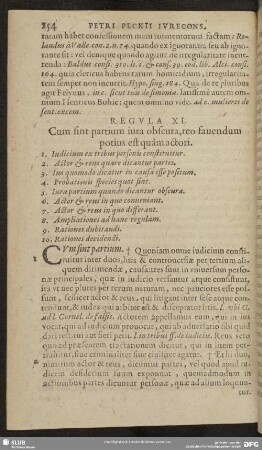 254 PETRI PECKII IVRECONS.
tatam habet confessionem
landus à Valle con. 2. n. 74. quando ex ignorantia seu ab igno-
rante sit: vel denique quando agant de irregularitate incur-
renda: Baldus consi. 
164. quia clericus habens tatum homicidium, irregularita-
tem semper non incurrit: Hyp. sing. 164. Quia de re pluribus
agit Felynus, inc. sicut tuis de simonia. latissimè autem om-
nium Henricus Bohic: quem omnino vide. ad c. mulieres de
sent. excom.
REGVLA XI.
Cum sint partium iura obscura, reo fauendum
potius est quàm actori.
1. Iudicium ex tribus personis constituitur.
2. Actor & reus quare dicantur partes.
3. Ius quomodo dicatur in causa esse positum.
4. Probationis species quot sint.
5. Iura partium quando dicantur obscura.
6. Actor & reus in quo conueniant.
7. Actor & reus in quo differant.
8. Ampliationes ad hanc regulam.
9. Rationes dubitandi.
10. Rationes decidendi.
CVm sint partium. † Quoniam omne iudicium consti-
tuatur inter duos, litis & controuersiæ per tertium ali-
quem dirimendæ, causa tres sunt in vniuersum perso-
næ principales, quæ in iudicio versantur atque consistunt,
vt nec plures nec per rerum naturam, nec pauciores esse pos-
sunt, scilicet actor & reus, qui litigant inter sese atque con-
tendunt, & iudex qui arbiter est & disceptator litis. l.
ad l. Cornel. de falsis. Actorem appellamus eum, qui in ius
vocat, qui ad iudicium prouocat, qui ab aduersario sibi quid
dari restitui aut fieri petit. l. in tribus ff. de iudiciis. Reus vero
quo ad præsentem tractationem dicitur, qui in item pertra-
hitur, siue criminaliter siue ciuiliter agatur. † Et hi duo,
nimirum actor & reus, dicimur partes, vel quod apud iu-
dicem desiderium suum exponant: quemadmodum in
actionibus partes dicuntur personæ, quæ ad alium loquun-
tur,
SLUB